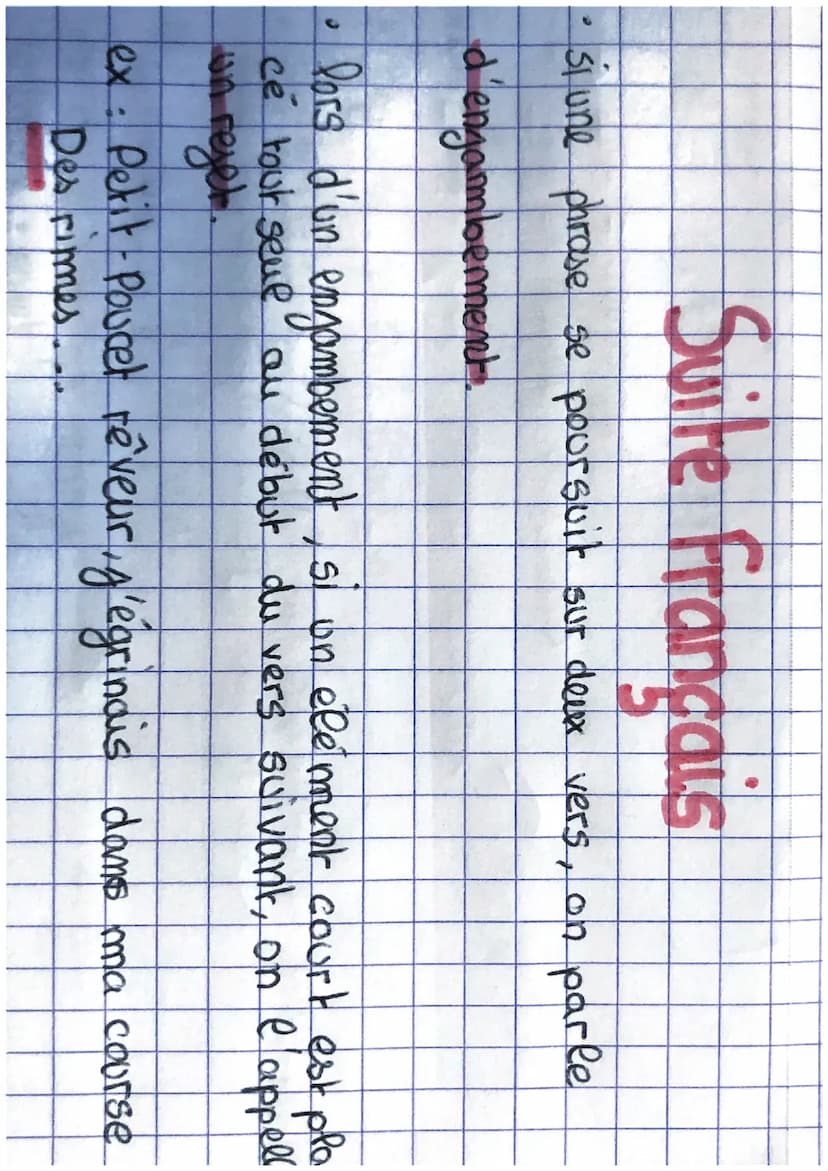 Suite français
• Si une phrase se poursuit sur deux vers, on parle
d'enjambement.
• lors d'un enjambement, si un élément court est pla
cé tout seul au début du vers suivant, on l'appell
un rejet.
ex : Petit-Poucet rêveur, j'égrinais dans ma course
Des rimes....